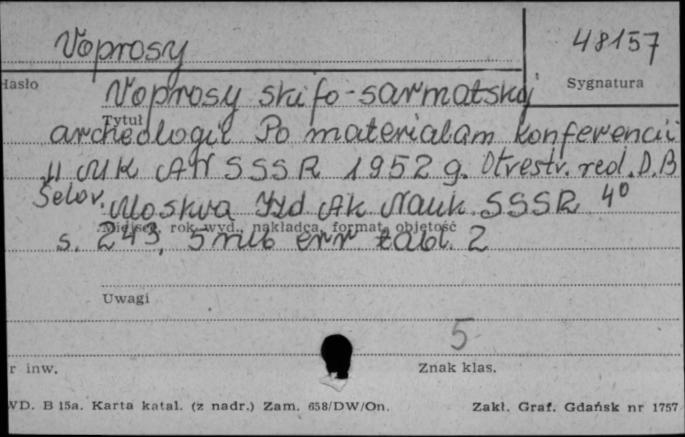 Voprosy
48157
Hasło
Sygnatura
Voprosy skifo-sarmatskoj
Tytuł
archeologii Po materialam konferencii
IIMK AN SSSR 1952 g. Otvestv. red. D.B
Šelov. Moskva Izd Ak Nauk. SSSR 4°
Miejsce, rok wyd., nakładca, format, objętość
s. 243, 5 nlb err tabl. 2
Uwagi
5
r inw.
Znak klas.
WD. B 15a. Karta katal. (z nadr.) Zam. 658/DW/On.
Zakł. Graf. Gdańsk nr 1757